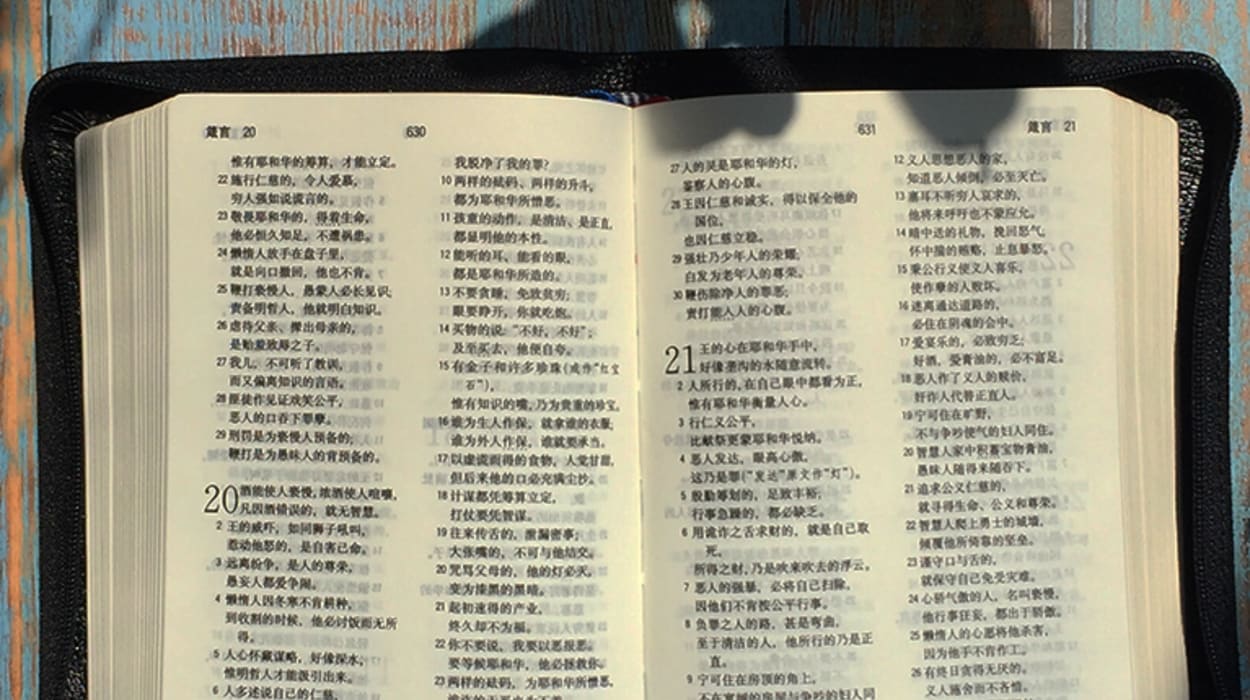 箴言 20
630
惟有耶和华的筹算，才能立定。
22 施行仁慈的，令人爱慕，
穷人强如说谎言的。
23 敬畏耶和华的，得着生命，
他必恒久知足，不遭祸患。
24 懒惰人放手在盘子里，
就是向口撤回，他也不肯。
25 鞭打亵慢人，愚蒙人必长见识；
责备明哲人，他就明白知识。
26 虐待父亲、撵出母亲的，
是贻羞致辱之子。
27 我儿，不可听了教训，
而又偏离知识的言语。
28 匪徒作见证戏笑公平，
恶人的口吞下罪孽。
29 刑罚是为亵慢人预备的，
鞭打是为愚昧人的背预备的。
20 酒能使人亵慢，浓酒使人喧嚷，
凡因酒错误的，就无智慧。
2 王的威吓，如同狮子吼叫，
惹动他怒的，是自害己命。
3 远离纷争，是人的尊荣，
愚妄人都爱争闹。
4 懒惰人因冬寒不肯耕种，
到收割的时候，他必讨饭而无所
得。
5 人心怀藏谋略，好像深水，
惟明哲人才能汲引出来。
6 人多述说自己的仁慈，
我脱净了我的罪？
10 两样的砝码、两样的升斗，
都为耶和华所憎恶。
11 孩童的动作，是清洁、是正直，
都显明他的本性。
12 能听的耳、能看的眼，
都是耶和华所造的。
13 不要贪睡，免致贫穷；
眼要睁开，你就吃饱。
14 买物的说：“不好，不好”；
及至买去，他便自夸。
15 有金子和许多珍珠（或作“红宝
石”），
惟有知识的嘴，乃为贵重的珍宝。
16 谁为生人作保，就拿谁的衣服；
谁为外人作保，谁就要承当。
17 以虚谎而得的食物，人觉甘甜，
但后来他的口必充满尘沙。
18 计谋都凭筹算立定，
打仗要凭智谋。
19 往来传舌的，泄漏密事；
大张嘴的，不可与他结交。
20 咒骂父母的，他的灯必灭，
变为漆黑的黑暗。
21 起初速得的产业，
终久却不为福。
22 你不要说，我要以恶报恶，
要等候耶和华，他必拯救你。
23 两样的砝码，为耶和华所憎恶，
631
箴言 21
27 人的灵是耶和华的灯，
鉴察人的心腹。
28 王因仁慈和诚实，得以保全他的
国位，
也因仁慈立稳。
29 强壮乃少年人的荣耀；
白发为老年人的尊荣。
30 鞭伤除净人的罪恶；
责打能入人的心腹。
21 王的心在耶和华手中，
好像垄沟的水随意流转。
2 人所行的，在自己眼中都看为正，
惟有耶和华衡量人心。
3 行仁义公平，
比献祭更蒙耶和华悦纳。
4 恶人发达，眼高心傲，
这乃是罪（“发达”原文作“灯”）。
5 殷勤筹划的，足致丰裕；
行事急躁的，都必缺乏。
6 用诡诈之舌求财的，就是自己取
死，
所得之财，乃是吹来吹去的浮云。
7 恶人的强暴，必将自己扫除，
因他们不肯按公平行事。
8 负罪之人的路，甚是弯曲，
至于清洁的人，他所行的乃是正
直。
9 宁可住在房顶的角上，
不在宽阔的房屋与争吵的妇人同
12 义人思想恶人的家，
知道恶人倾倒，必至灭亡。
13 塞耳不听穷人哀求的，
他将来呼吁也不蒙应允。
14 暗中送的礼物，挽回怒气，
怀中揣的贿赂，止息暴怒。
15 秉公行义使义人喜乐，
使作孽的人败坏。
16 迷离通达道路的，
必住在阴魂的会中。
17 爱宴乐的，必致穷乏；
好酒，爱膏油的，必不富足。
18 恶人作了义人的赎价，
奸诈人代替正直人。
19 宁可住在旷野，
不与争吵使气的妇人同住。
20 智慧人家中积蓄宝物膏油，
愚昧人随得来随吞下。
21 追求公义仁慈的，
就寻得生命、公义和尊荣。
22 智慧人爬上勇士的城墙，
倾覆他所倚靠的坚垒。
23 谨守口与舌的，
就保守自己免受灾难。
24 心骄气傲的人，名叫亵慢，
他行事狂妄，都出于骄傲。
25 懒惰人的心愿将他杀害，
因为他手不肯作工。
26 有终日贪得无厌的，
义人施舍而不吝惜。